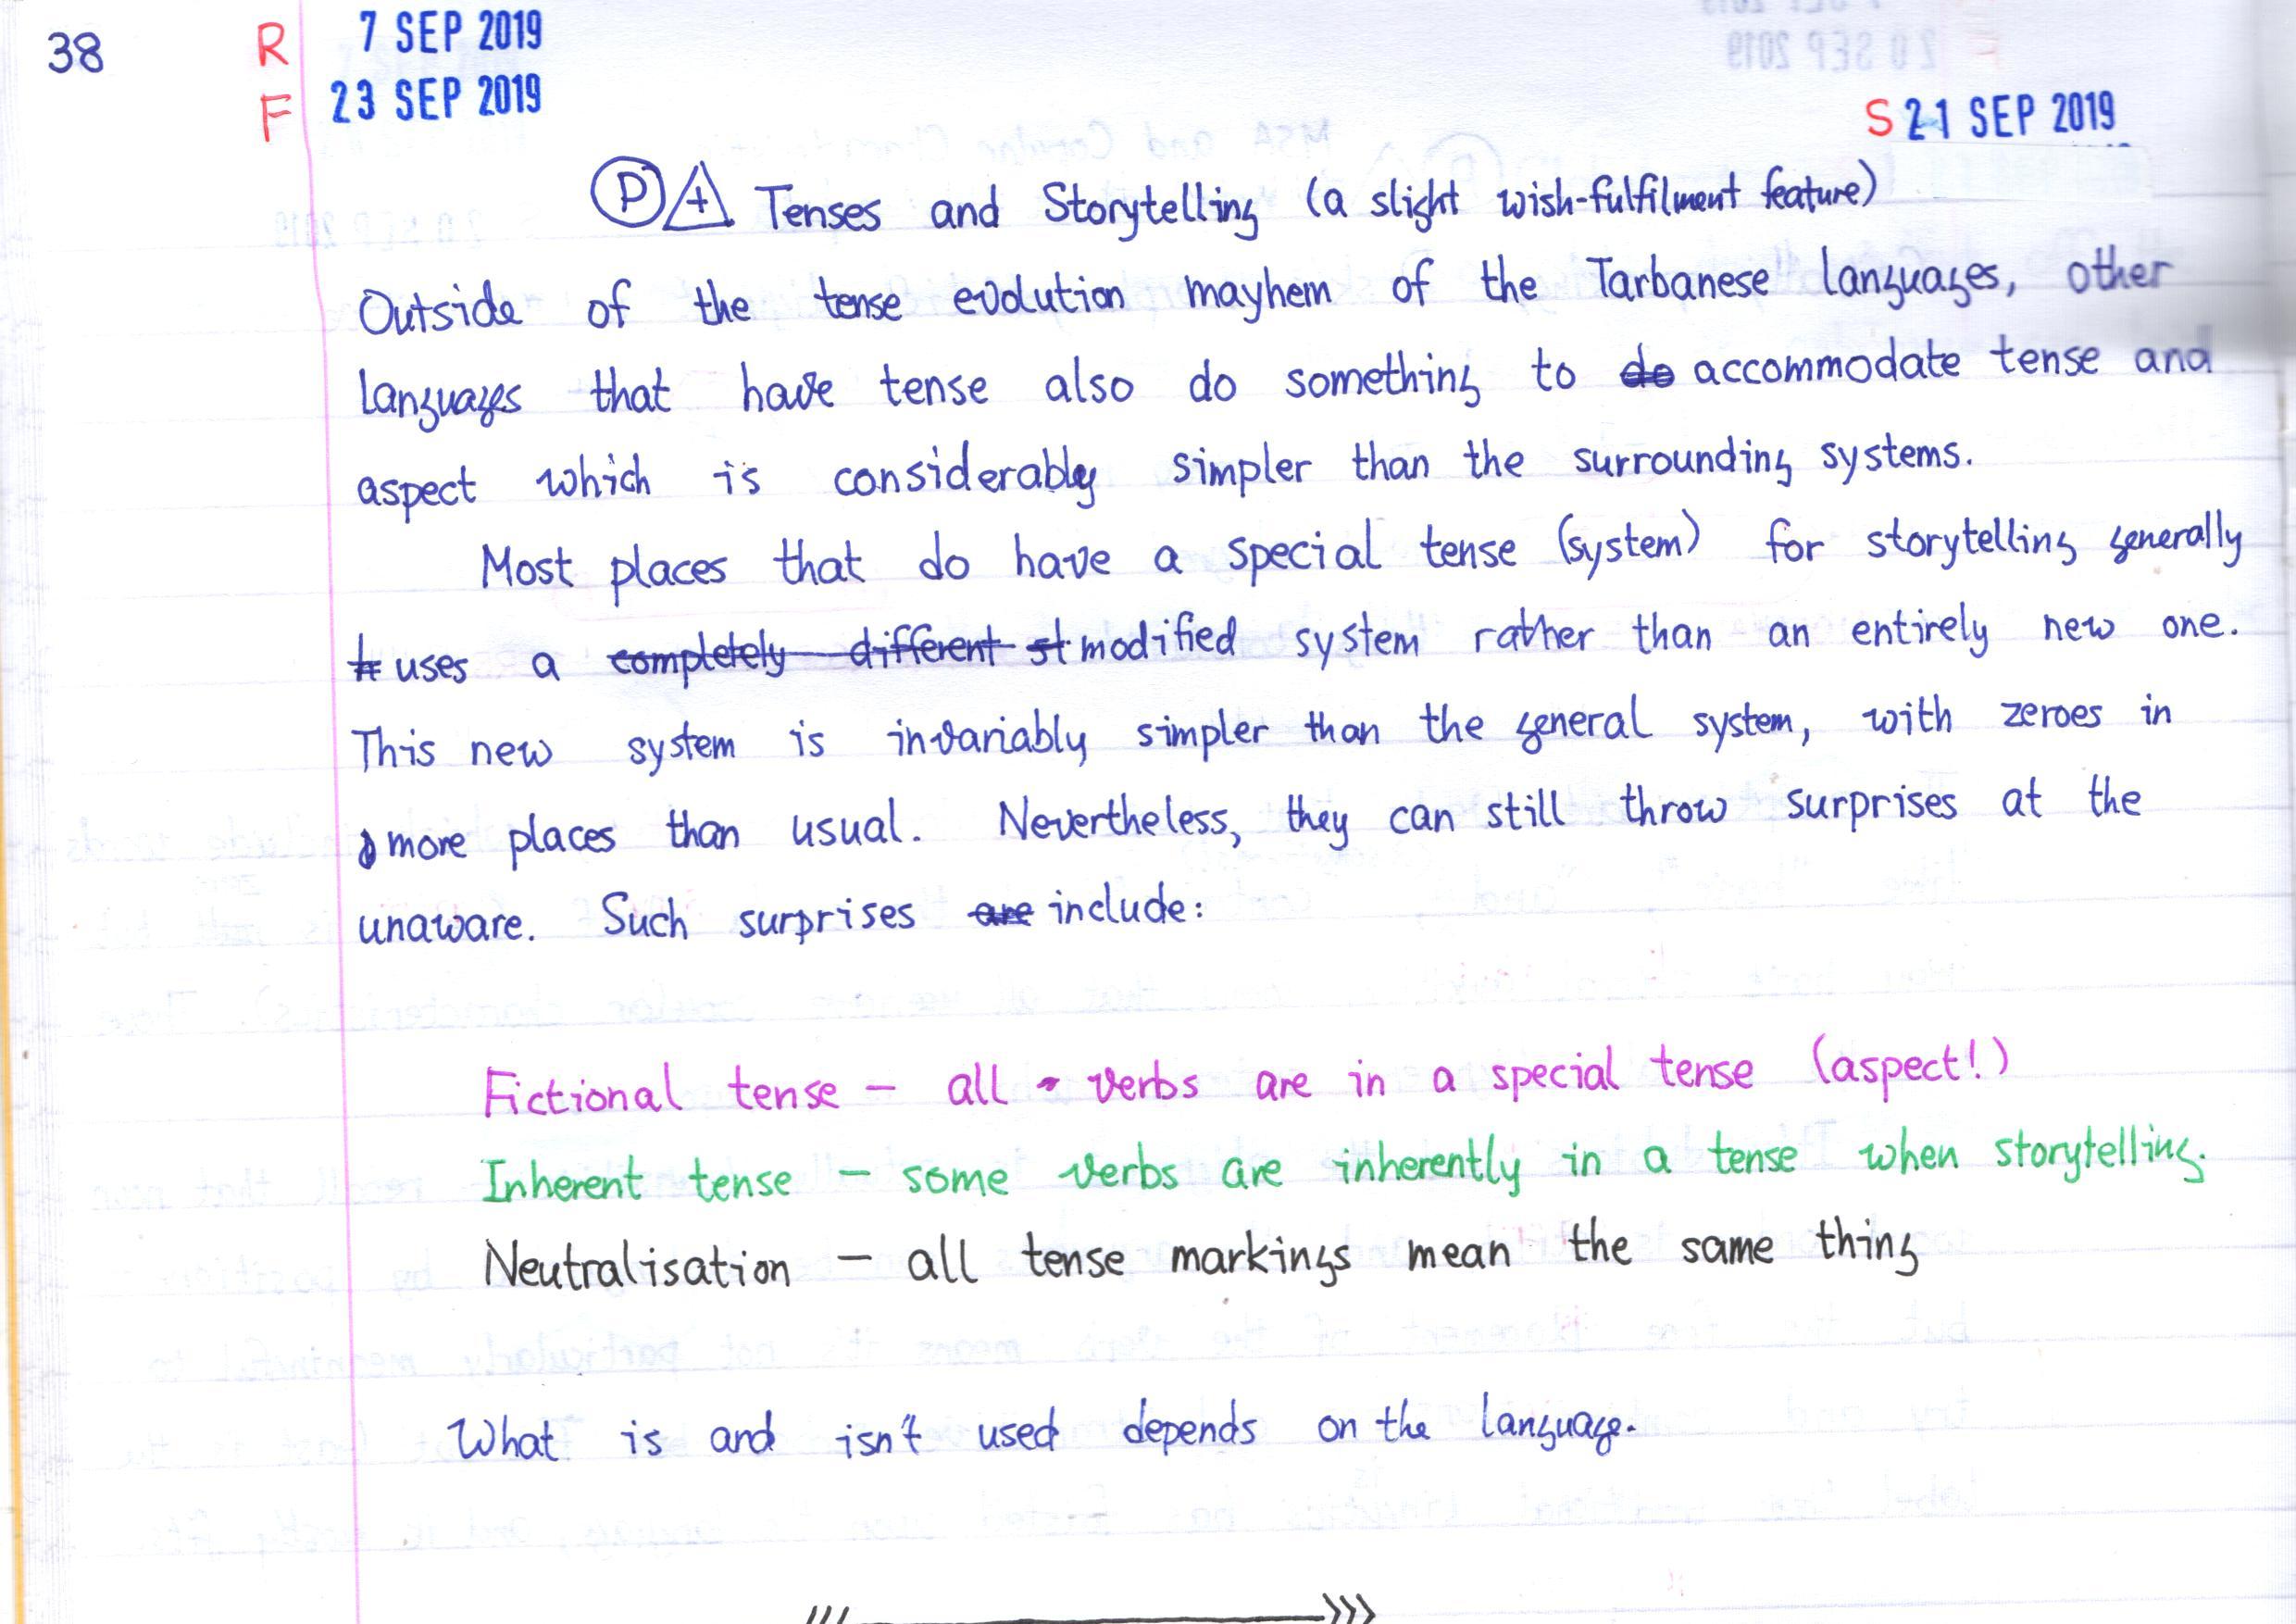 38 R 7 SEP 2019
F 23 SEP 2019
S 21 SEP 2019
P + Tenses and Storytelling (a slight wish-fulfilment feature)
Outside of the tense evolution mayhem of the Tarbanese languages, other
languages that have tense also do something to do accommodate tense and
aspect which is considerably simpler than the surrounding systems.
Most places that do have a special tense (system) for storytelling generally
uses a completely different st modified system rather than an entirely new one.
This new system is invariably simpler than the general system, with zeroes in
more places than usual. Nevertheless, they can still throw surprises at the
unaware. Such surprises are include:
Fictional tense – all verbs are in a special tense (aspect!)
Inherent tense – some verbs are inherently in a tense when storytelling.
Neutralisation – all tense markings mean the same thing
What is and isn't used depends on the language.